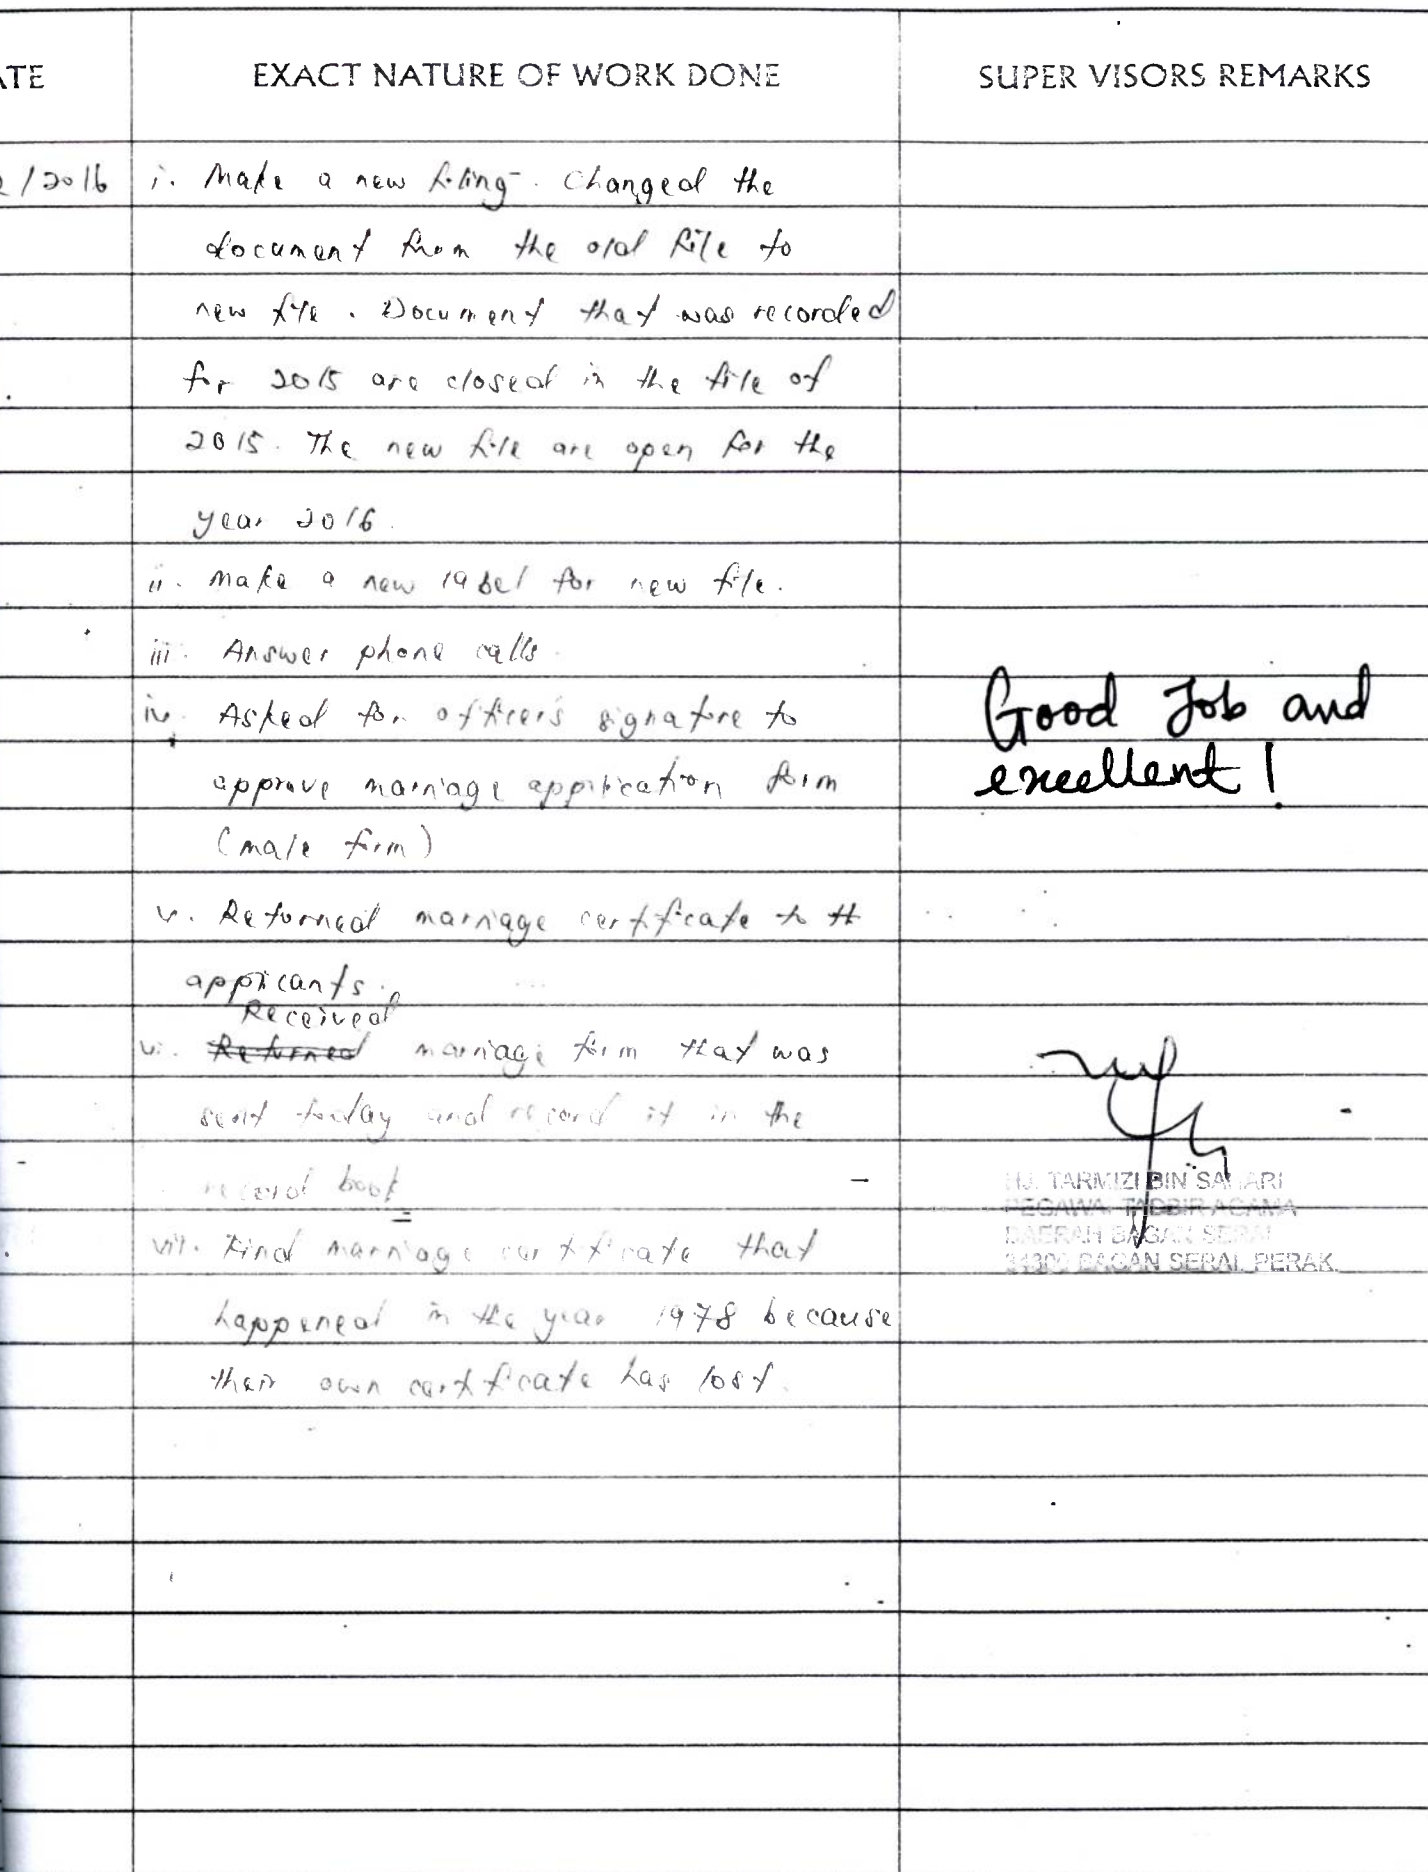 ATE EXACT NATURE OF WORK DONE SUPER VISORS REMARKS
2/2016 i. Make a new filing. Changed the
document from the old file to
new file. Document that was recorded
for 2015 are closed in the file of
2015. The new file are open for the
year 2016.
ii. Make a new label for new file.
iii. Answer phone calls.
iv. Asked for officer's signature to
approve marriage application form
(male form)
Good Job and
excellent!
v. Returned marriage certificate to tt
applicants.
Received
vi. Returned marriage form that was
sent today and record it in the
record book
vii. Find marriage certificate that
happened in the year 1978 because
their own certificate has lost.
HJ. TARMIZI BIN SAHARI
PEGAWAI TADBIR AGAMA
DAERAH BAGAN SERAI
34300 BAGAN SERAI, PERAK.